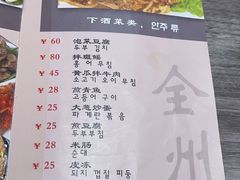 下酒菜类. 안주류
¥ 60 泡菜豆腐
두부김치
¥ 80 拌斑鳐
홍어무침
¥ 45 黄瓜拌牛肉
소고기 오이무침
¥ 28 煎青鱼
고등어구이
¥ 25 大葱炒蛋
파계란볶음
¥ 25 煎豆腐
두부부침
¥ 28 米肠
순대
¥ 25 皮冻
돼지껍질
全州